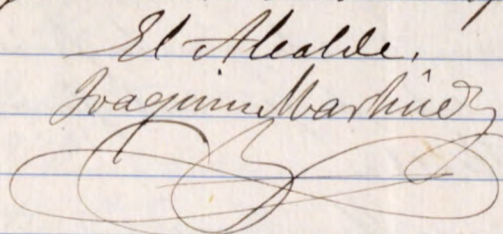 El Alcalde.
Joaquin Martinez